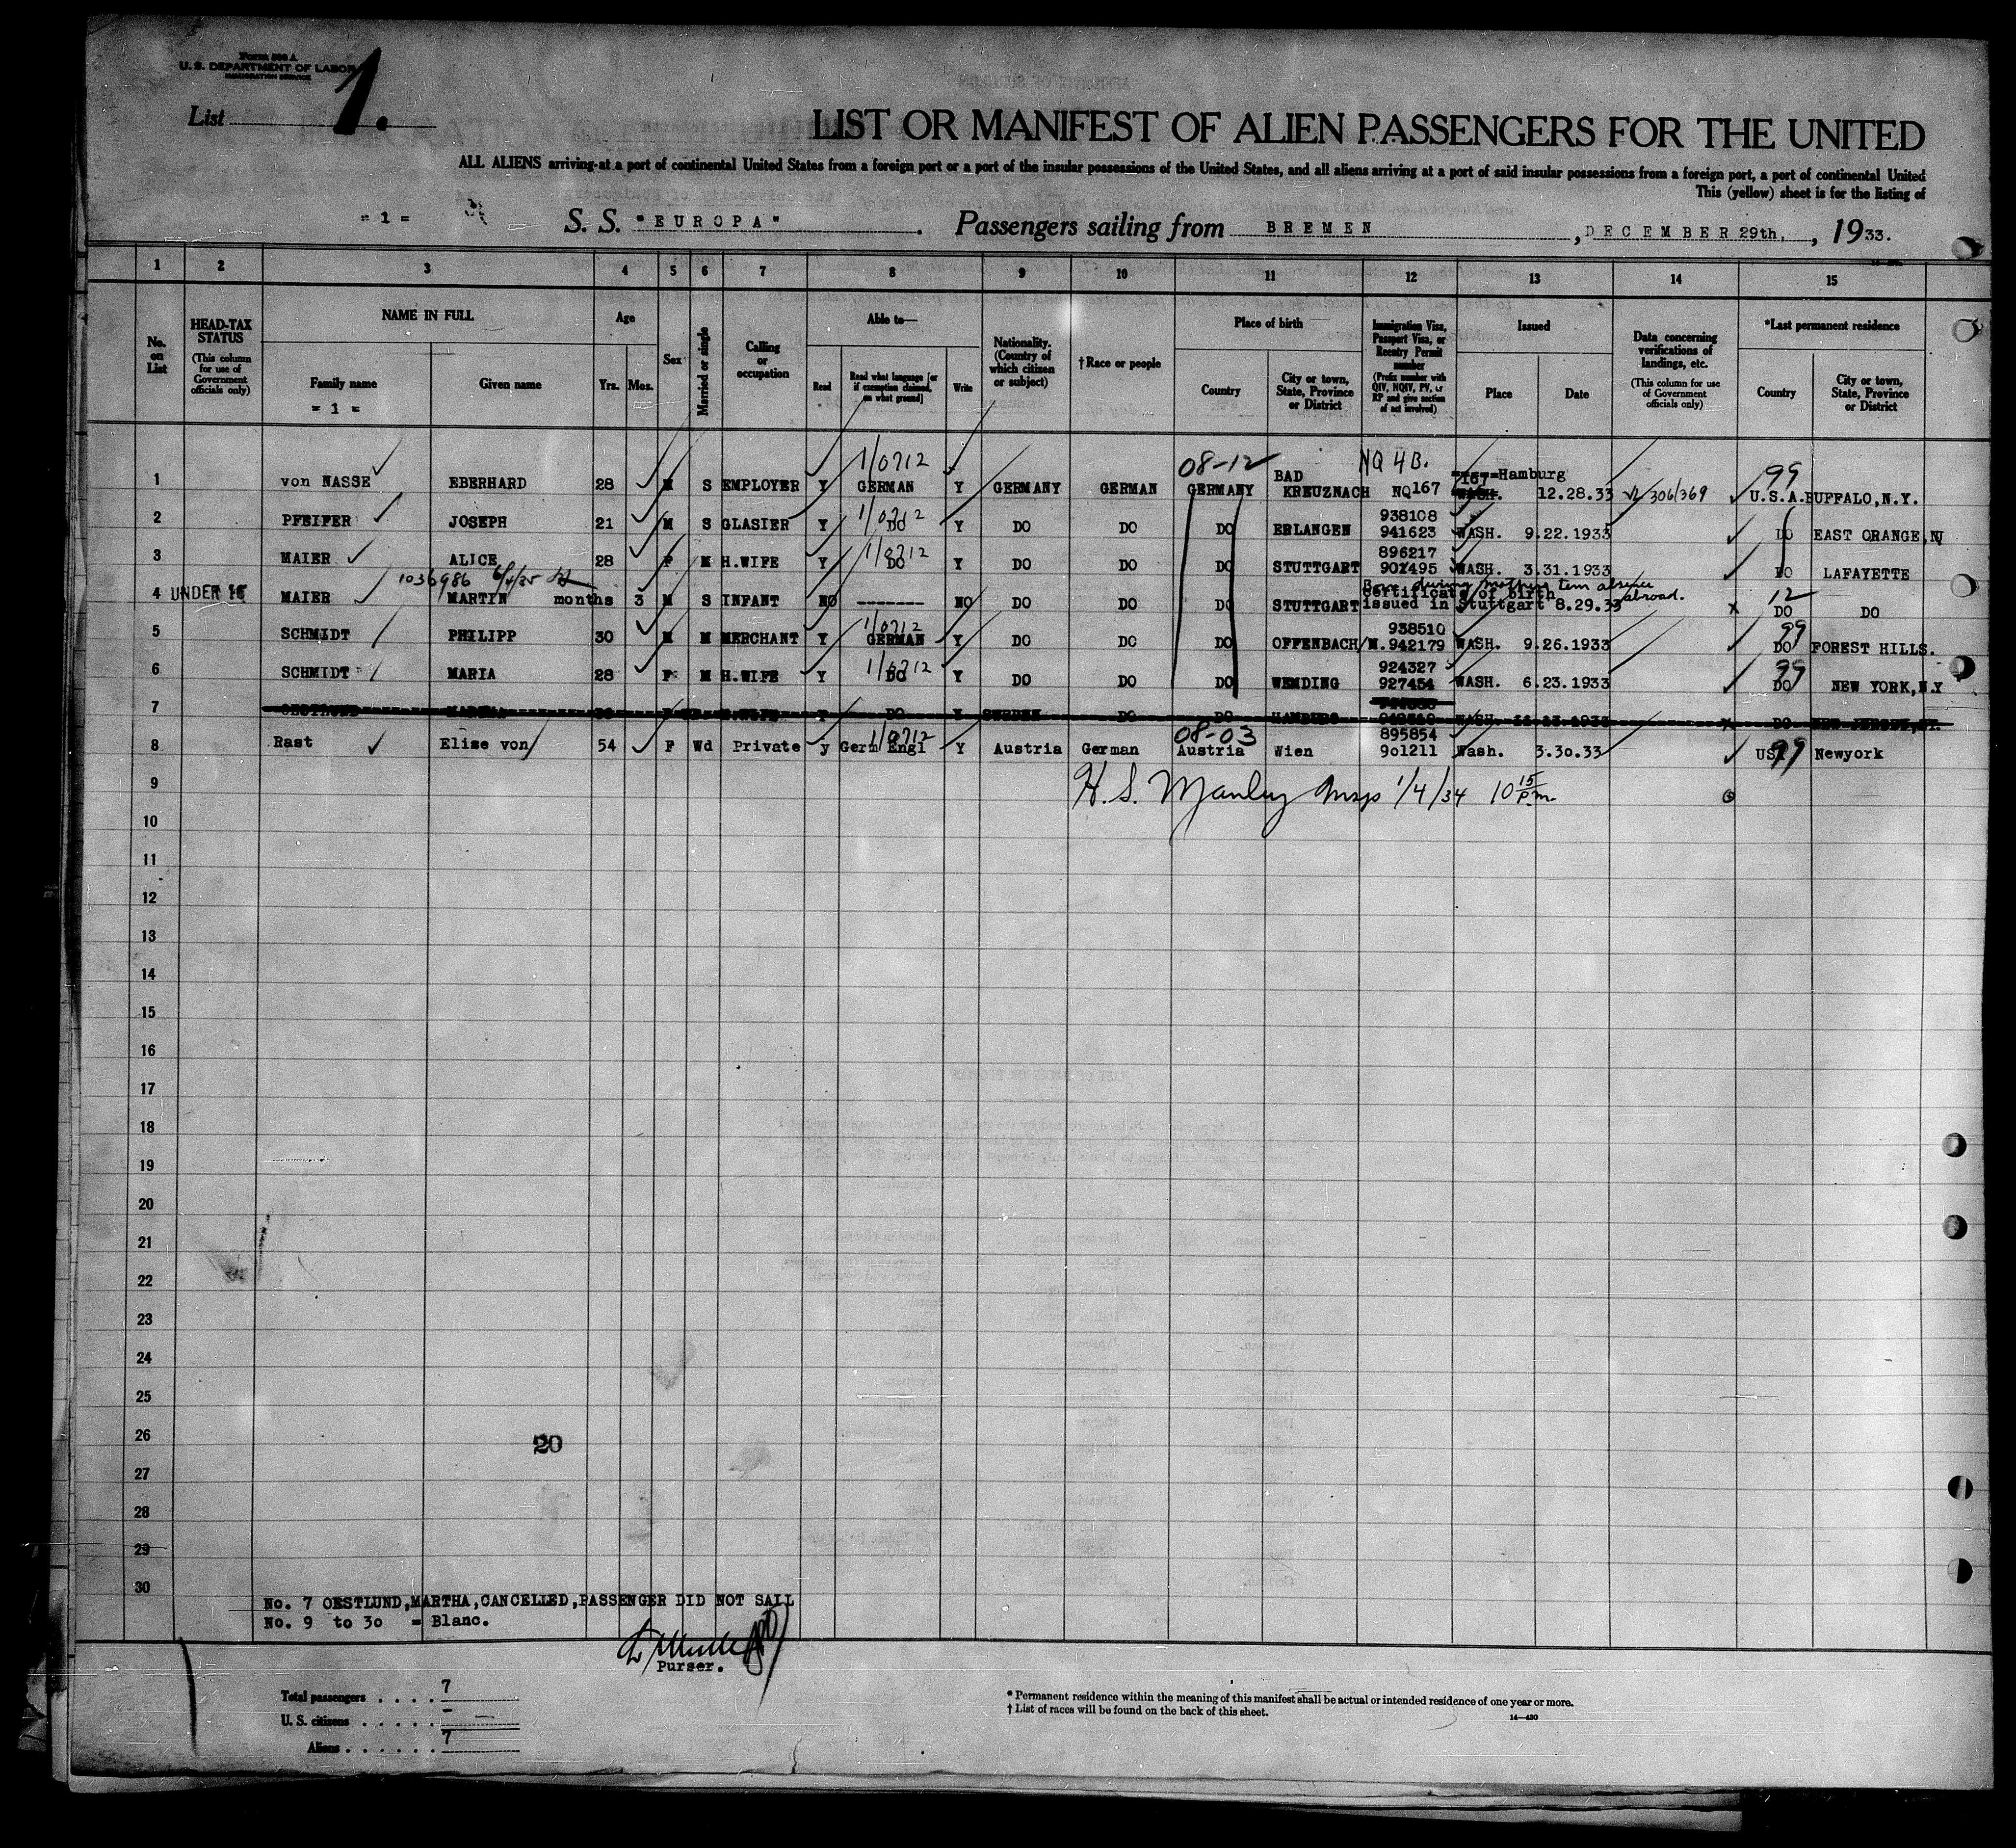 Form 500 A
U. S. DEPARTMENT OF LABOR
IMMIGRATION SERVICE
List 1.
LIST OR MANIFEST OF ALIEN PASSENGERS FOR THE UNITED
ALL ALIENS arriving at a port of continental United States from a foreign port or a port of the insular possessions of the United States, and all aliens arriving at a port of said insular possessions from a foreign port, a port of continental United
This (yellow) sheet is for the listing of
= 1 =
S. S. "EUROPA". Passengers sailing from BREMEN, DECEMBER 29th, 1933.
1 2 3 4 5 6 7 8 9 10 11 12 13 14 15
No. on List
HEAD-TAX STATUS (This column for use of Government officials only)
NAME IN FULL
Family name
= 1 =
Given name
Age
Yrs. Mos.
Sex
Married or single
Calling or occupation
Able to—
Read
Read what language [or if exemption claimed, on what ground]
Write
Nationality. (Country of which citizen or subject)
†Race or people
Place of birth
Country
City or town, State, Province or District
Immigration Visa, Passport Visa, or Reentry Permit number (Prefix number with QIV, NQIV, PV, or RP and give section of act involved)
Issued
Place
Date
Data concerning verifications of landings, etc. (This column for use of Government officials only)
*Last permanent residence
Country
City or town, State, Province or District
1/0712 08-12 NQ 4B. 99
1 von NASSE EBERHARD 28 M S EMPLOYER Y GERMAN Y GERMANY GERMAN GERMANY BAD KREUZNACH NQ167 167 WASH. Hamburg 12.28.33 306/369 U.S.A. BUFFALO,N.Y.
2 PFEIFER JOSEPH 21 M S GLASIER Y DO 1/0712 Y DO DO DO ERLANGEN 938108 941623 WASH. 9.22.1933 DO EAST ORANGE,NJ
3 MAIER ALICE 28 F M H.WIFE Y DO 1/0712 Y DO DO DO STUTTGART 896217 901495 WASH. 3.31.1933 DO LAFAYETTE
1036986 6/4/35
Born during mothers tem absence abroad.
4 UNDER 16 MAIER MARTIN months 3 M S INFANT NO -------- NO DO DO DO STUTTGART Certificate of birth issued in Stuttgart 8.29.33 12 DO DO
5 SCHMIDT PHILIPP 30 M M MERCHANT Y GERMAN 1/0712 Y DO DO DO OFFENBACH/M. 938510 942179 WASH. 9.26.1933 99 DO FOREST HILLS.
6 SCHMIDT MARIA 28 F M H.WIFE Y DO 1/0712 Y DO DO DO WEMDING 924327 927454 WASH. 6.23.1933 99 DO NEW YORK,N.Y
7 OESTLUND MARTHA H.WIFE Y DO Y SWEDEN DO DO HAMBURG WASH. DO
8 Rast Elise von 54 F Wd Private y Germ Engl 1/0712 Y Austria German 08-03 Austria Wien 895854 901211 Wash. 3.30.33 US 99 Newyork
9 H. S. Manley 1/4/34 10 15 P.m.
10
11
12
13
14
15
16
17
18
19
20
21
22
23
24
25
26
20
27
28
29
30
No. 7 OESTLUND,MARTHA,CANCELLED,PASSENGER DID NOT SAIL
No. 9 to 30 = Blanc.
Purser.
Total passengers . . . . 7
U. S. citizens . . . . . —
Aliens . . . . . . 7
* Permanent residence within the meaning of this manifest shall be actual or intended residence of one year or more.
† List of races will be found on the back of this sheet.
14—430